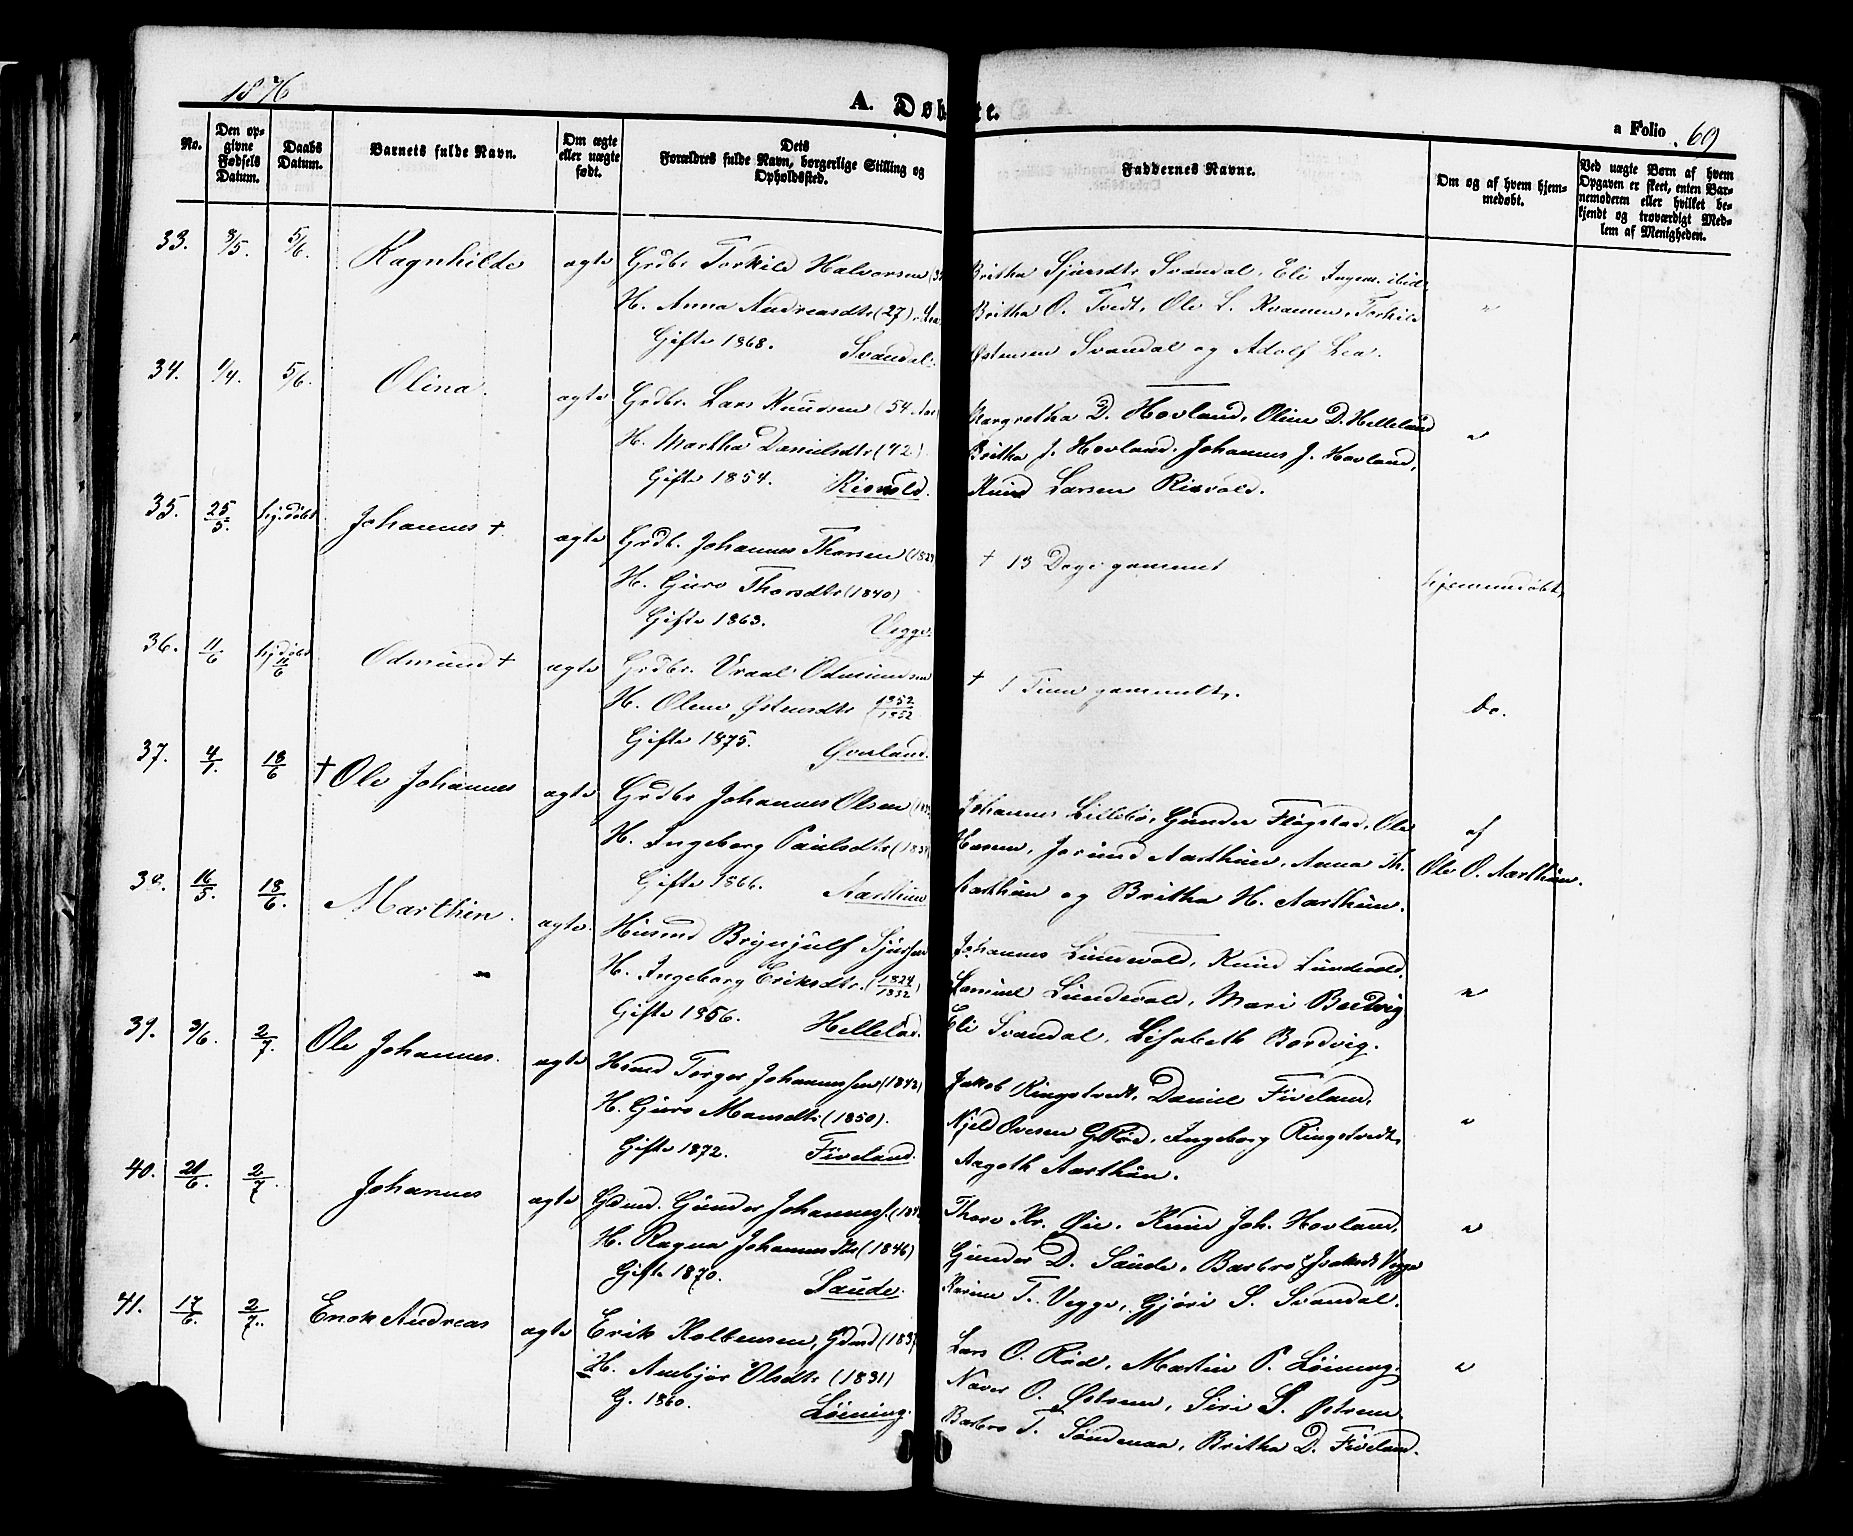 1876
A. Døbte.
a Folio 69
No.
Den op-
givne
Fødsels
Datum.
Daabs
Datum.
Barnets fulde Navn.
Om ægte
eller uægte
født.
Dets
Forældres fulde Navn, borgerlige Stilling og
Opholdssted.
Faddernes Navne.
Om og af hvem hjem-
medøbt.
Ved uægte Børn af hvem
Opgaven er skeet, enten Bar-
nemoderen eller hvilket be-
kjendt og troværdigt Med-
lem af Menigheden.
33. 8/5. 5/6. Ragnhilde ægte Grdbr Torkild Halvorsen Britha Sjursdtr Svandal, Eli Ingem. ibid.
H. Anna Andreasdtr (27) Britha O. Tvedt, Ole L. Kvamen, Torkild "
Gifte 1868. Svandal. Østensen Svandal og Adolf Lea.
34. 1/4. 5/6. Olina. ægte Grdbr. Lars Knudsen (54 Aar) Margretha D. Hovland, Oline D. Helleland
H. Martha Danielsdtr (42) Britha J. Hovland, Johannes J. Hovland, "
Gifte 1854. Risvold. Knud Larsen Risvold.
35. 25/5. hj.døbt Johannes † ægte Grdb. Johannes Thorsen † 13 Dage gammel
H. Guro Thorsdtr (1840) hjemmedøbt,
Gifte 1863. Vegge.
36. 11/6 hjdøbt 11/6 Odmund † ægte Grdbr. Vraal Odmundsen † 1 Time gammelt,
H. Olene Østensdtr 1852/1852 do.
Gifte 1875. Øvreland.
37. 4/1. 18/6 † Ole Johannes ægte Grdbr Johannes Olsen Johannes Lillebø, Gunder Fløgstad, Ole af
H. Ingeborg Paulsdtr Hasen, Jorund Aarthun, Anna Th. Ole O. Aarthun.
Gifte 1866. Aarthun Aarthun og Britha H. Aarthun.
38. 16/5. 18/6. Marthin. ægte. Husmd Brynjulf Sjursen Johannes Lundevold, Knud Lundevold,
H. Ingeborg Eriksdtr. (1824/1832) Samuel Lundevold, Mari Bordvig "
Gifte 1856. Hellelad. Eli Svandal, Lisabeth Bordvig.
39. 3/6. 2/7. Ole Johannes. ægte Hsmd Torger Johannessen (1842) Jakob Ringstvedt, Daniel Fiveland,
H. Guro Monsdtr (1850). Njeld Ovesen G.Rød, Ingeborg Ringstvedt, "
Gifte 1872. Fiveland. Aagoth Aarthun.
40. 21/6. 2/7. Johannes ægte Gdmd. Gunder Johanness. Thore Kr. Øie, Knud Joh. Hovland,
H. Ragna Johannesdtr (1846) Gunder D. Saude, Barbro Isaksdt Vegge "
Gifte 1870. Saude. Karine T. Vegge, Gjøri S. Svandal.
41. 17/6. 2/7. Enok Andreas ægte Erik Kolbensen, Gdmd Lars O. Rød, Martin P. Løining,
H. Ambjør Olsdtr (1831) Naver O. Østrem, Siri S. Østrem "
G. 1860. Løining. Barbro T. Søndenaa, Britha D. Fiveland.